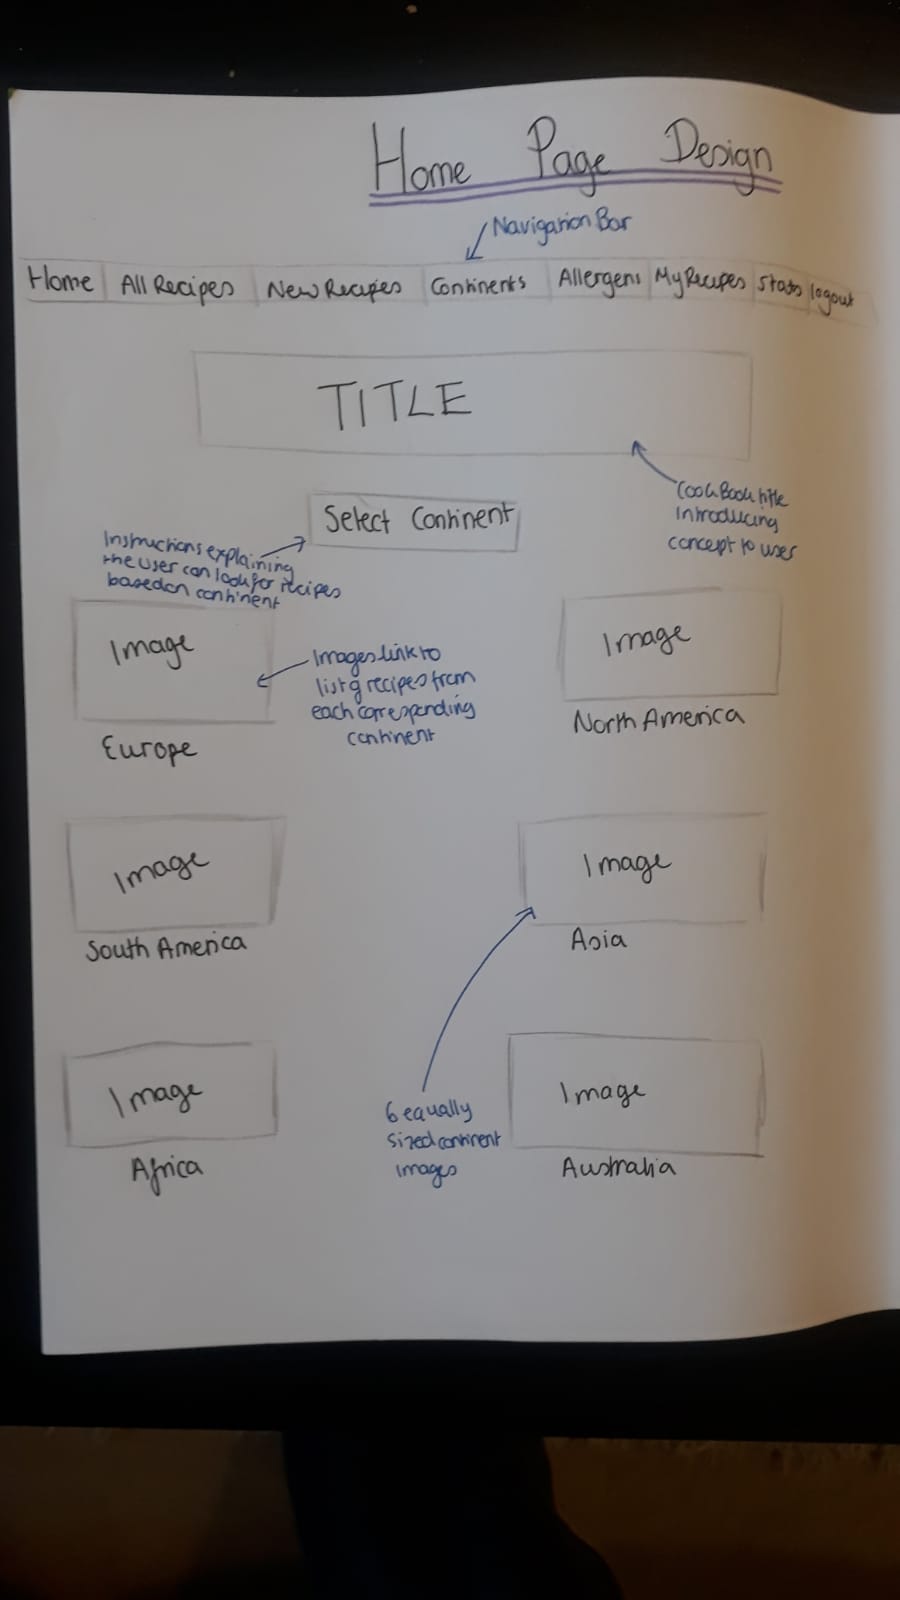 Home Page Design
Navigation Bar
Home All Recipes New Recipes Continents Allergens My Recipes Stats logout
TITLE
Cook Book title
Introducing
concept to user
Select Continent
Instructions explaining
the user can look for recipes
based on continent
Image
Image
Images link to
list of recipes from
each corresponding
continent
Europe
North America
Image
Image
South America
Asia
Image
Image
6 equally
sized continent
images
Africa
Australia